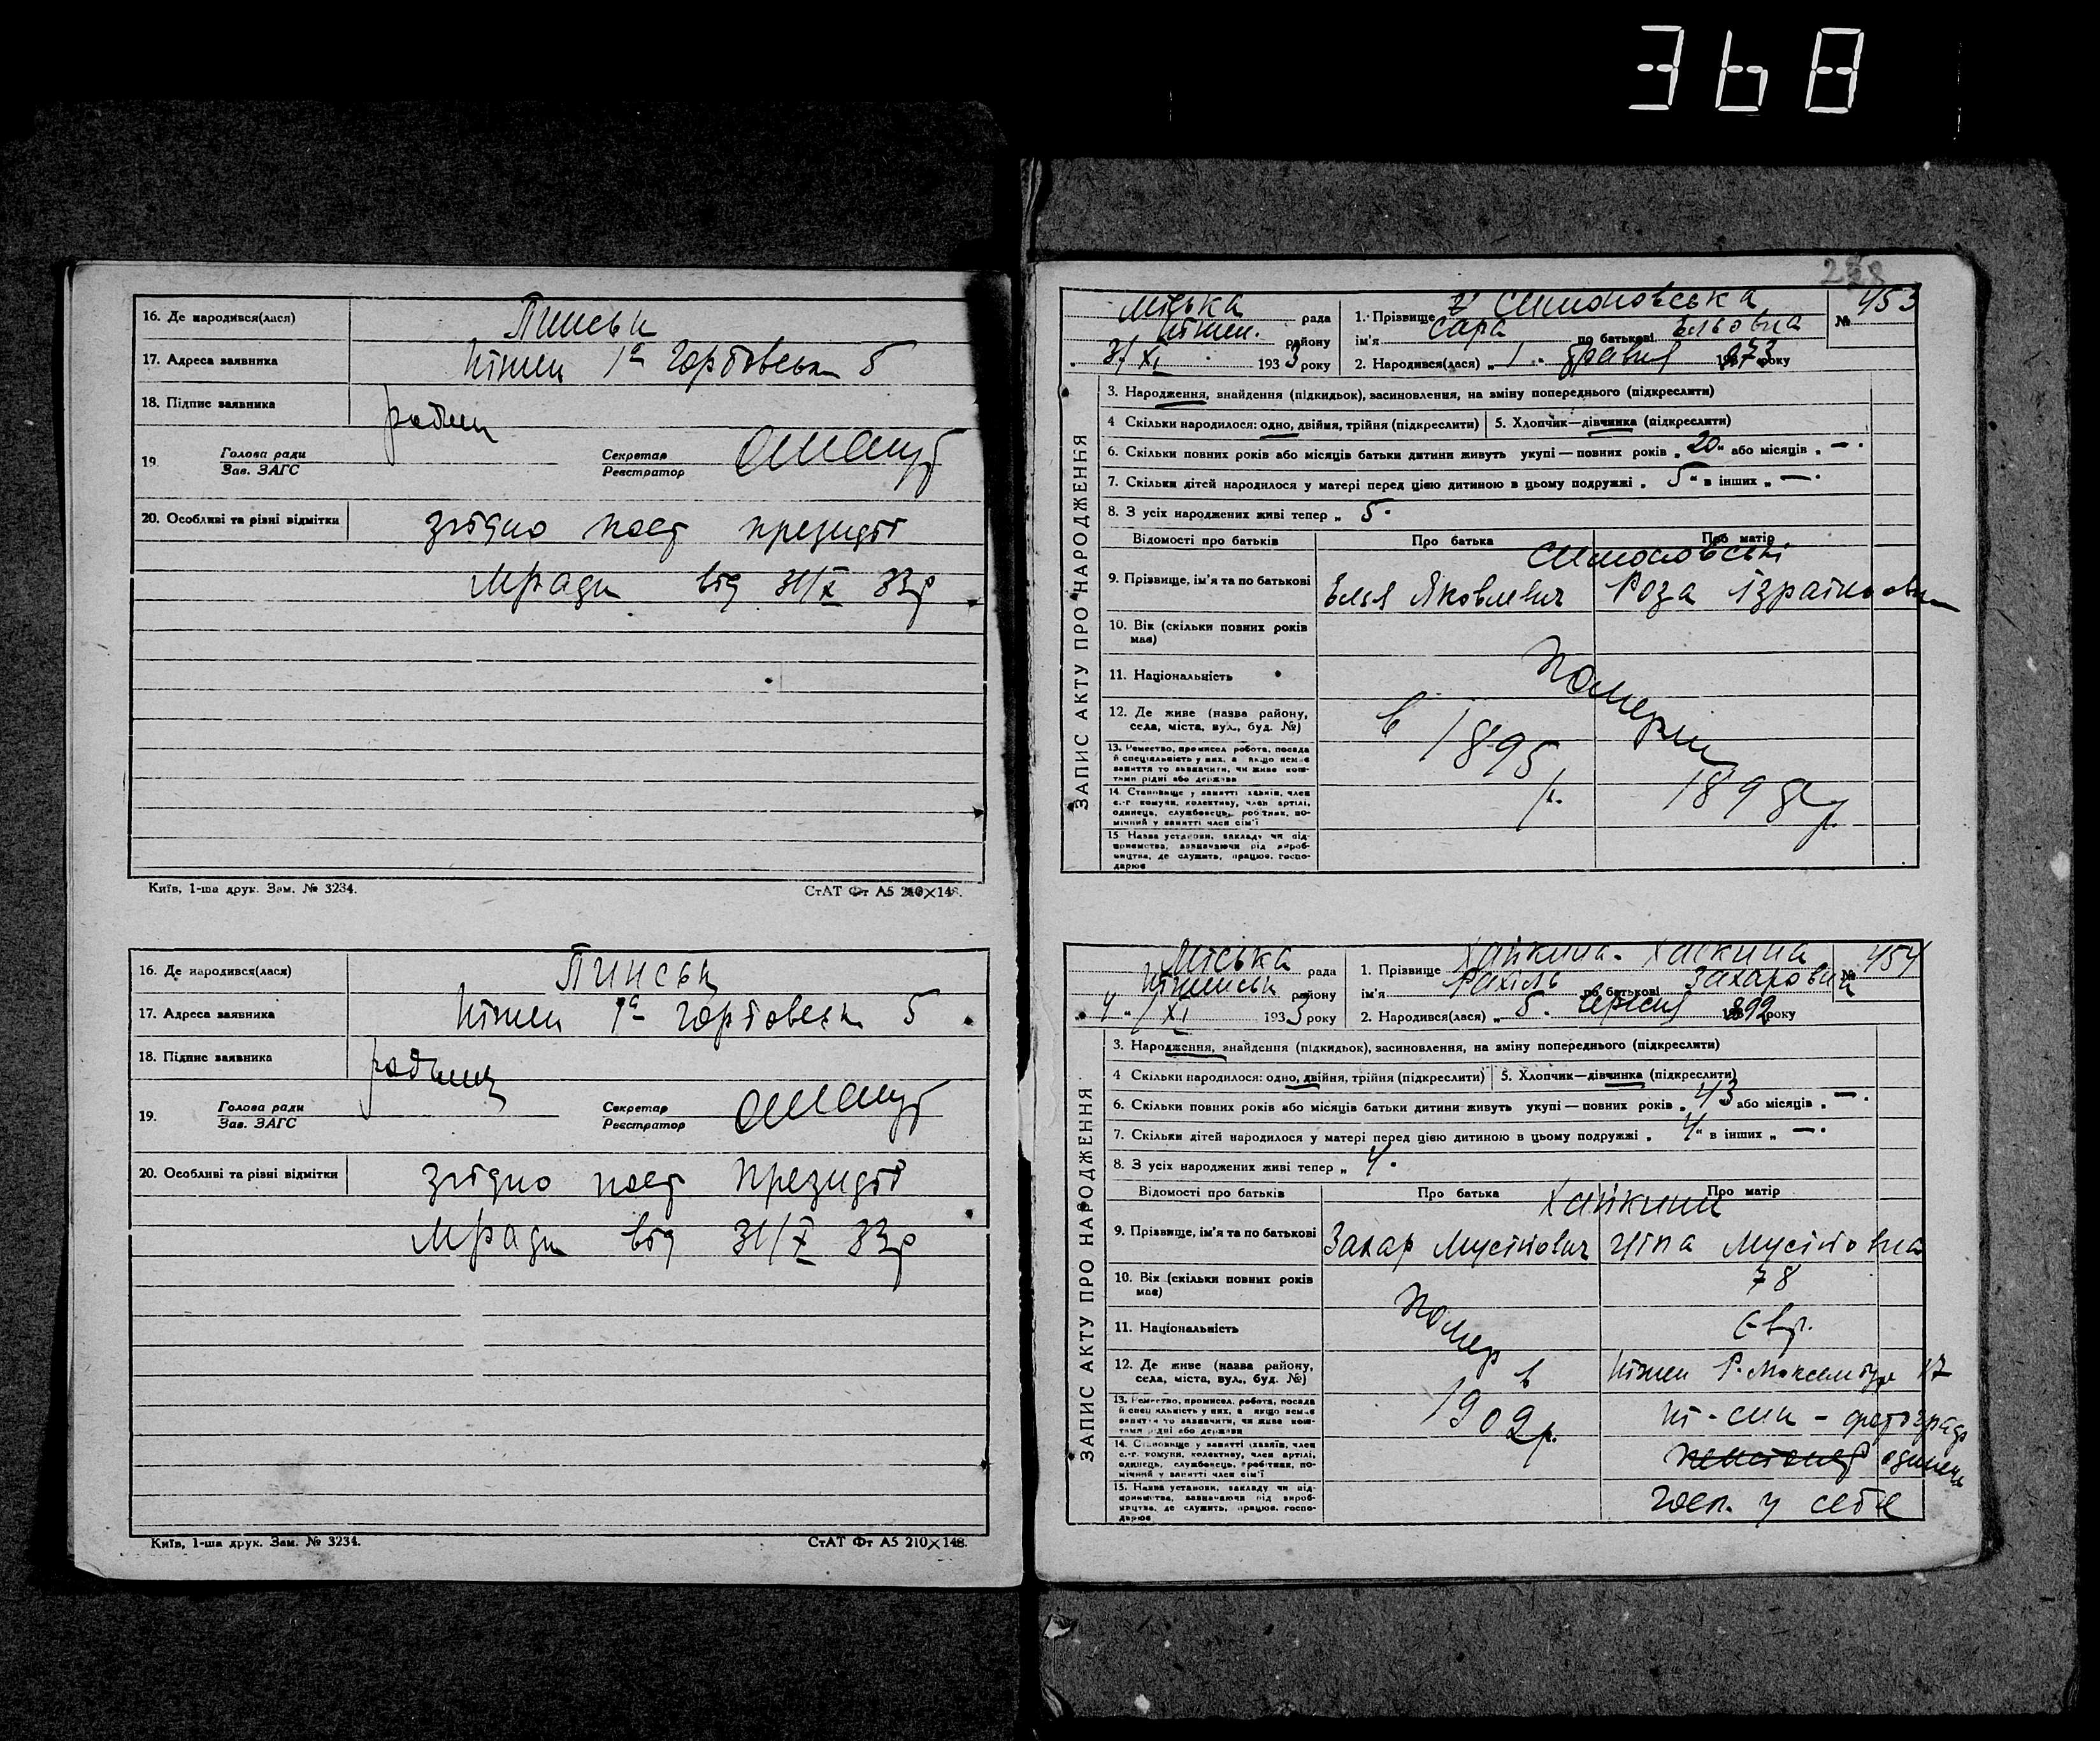 368
16. Де народився(лася) Пинськ
17. Адреса заявника Ніжен 1а 5
18. Підпис заявника
19. Голова ради
Зав. ЗАГС
Секретар
Реєстратор
20. Особливі та різні відмітки згідно пост президії
М/ради від 31/X 33р
Київ, 1-ша друк. Зам. № 3234. СтАТ Фт А5 210×148.
16. Де народився(лася) Пинськ
17. Адреса заявника Ніжен 1а 5
18. Підпис заявника
19. Голова ради
Зав. ЗАГС
Секретар
Реєстратор
20. Особливі та різні відмітки згідно пост президії
М/ради від 31/X 33р
Київ, 1-ша друк. Зам. № 3234. СтАТ Фт А5 210×148.
ЗАПИС АКТУ ПРО НАРОДЖЕННЯ
Міська рада
Ніжен. району
XI 1933 року
1. Прізвище Симоновська № 453
ім'я Сара по батькові Ельовна
2. Народився(лася) „1“ травня 1873 року
3. Народження, знайдення (підкидьок), засиновлення, на зміну попереднього (підкреслити)
4 Скільки народилося: одно, двійня, трійня (підкреслити) 5. Хлопчик—дівчинка (підкреслити)
6. Скільки повних років або місяців батьки дитини живуть укупі — повних років „20“ або місяців „—“
7. Скільки дітей народилося у матері перед цією дитиною в цьому подружжі „5“ в інших „—“
8. З усіх народжених живі тепер „5“
Відомості про батьків Про батька Про матір
Симоновські
9. Прізвище, ім'я та по батькові Елья Яковлевич Роза
10. Вік (скільки повних років має)
11. Національність
Померли
12. Де живе (назва району, села, міста, вул., буд. №)
в 1895 р.
13. Ремество, промисел робота, посада й спеціяльність у них, а якщо немає заняття то зазначити, чи живе коштами рідні або держави
14. Становище у занятті хазяїн, член с.-г комуни, колективу, член артілі, одинець, службовець, робітник, помічний у занятті член сім'ї
15 Назва установи, закладу чи підприємства, зазначаючи рід виробництва, де служить, працює, господарює
ЗАПИС АКТУ ПРО НАРОДЖЕННЯ
Міська рада
Ніженськ району
„4“ XI 1933 року
1. Прізвище Хайкина-Хаскина № 454
ім'я Рахіль по батькові Захаровна
2. Народився(лася) „5“ вересня 1892 року
3. Народження, знайдення (підкидьок), засиновлення, на зміну попереднього (підкреслити)
4 Скільки народилося: одно, двійня, трійня (підкреслити) 5. Хлопчик—дівчинка (підкреслити)
6. Скільки повних років або місяців батьки дитини живуть укупі — повних років „43 або місяців „—“
7. Скільки дітей народилося у матері перед цією дитиною в цьому подружжі „4“ в інших „—“
8. З усіх народжених живі тепер „4“
Відомості про батьків Про батька Про матір
Хайкини
9. Прізвище, ім'я та по батькові Захар Мусійович Ціпа Мусійовна
10. Вік (скільки повних років має) 78
11. Національність Євр.
Помер в 1902р.
12. Де живе (назва району, села, міста, вул., буд. №) Ніжен 17
13. Ремество, промисел, робота, посада й спеціяльність у них, а якщо немає заняття то зазначити, чи живе коштами рідні або держави син - фотограф
14. Становище у занятті хазяїн, член с.-г. комуни, колективу, член артілі, одинець, службовець, робітник, помічний у занятті член сім'ї одинець
15. Назва установи, закладу чи підприємства, зазначаючи рід виробництва, де служить, працює, господарює госп. у себе